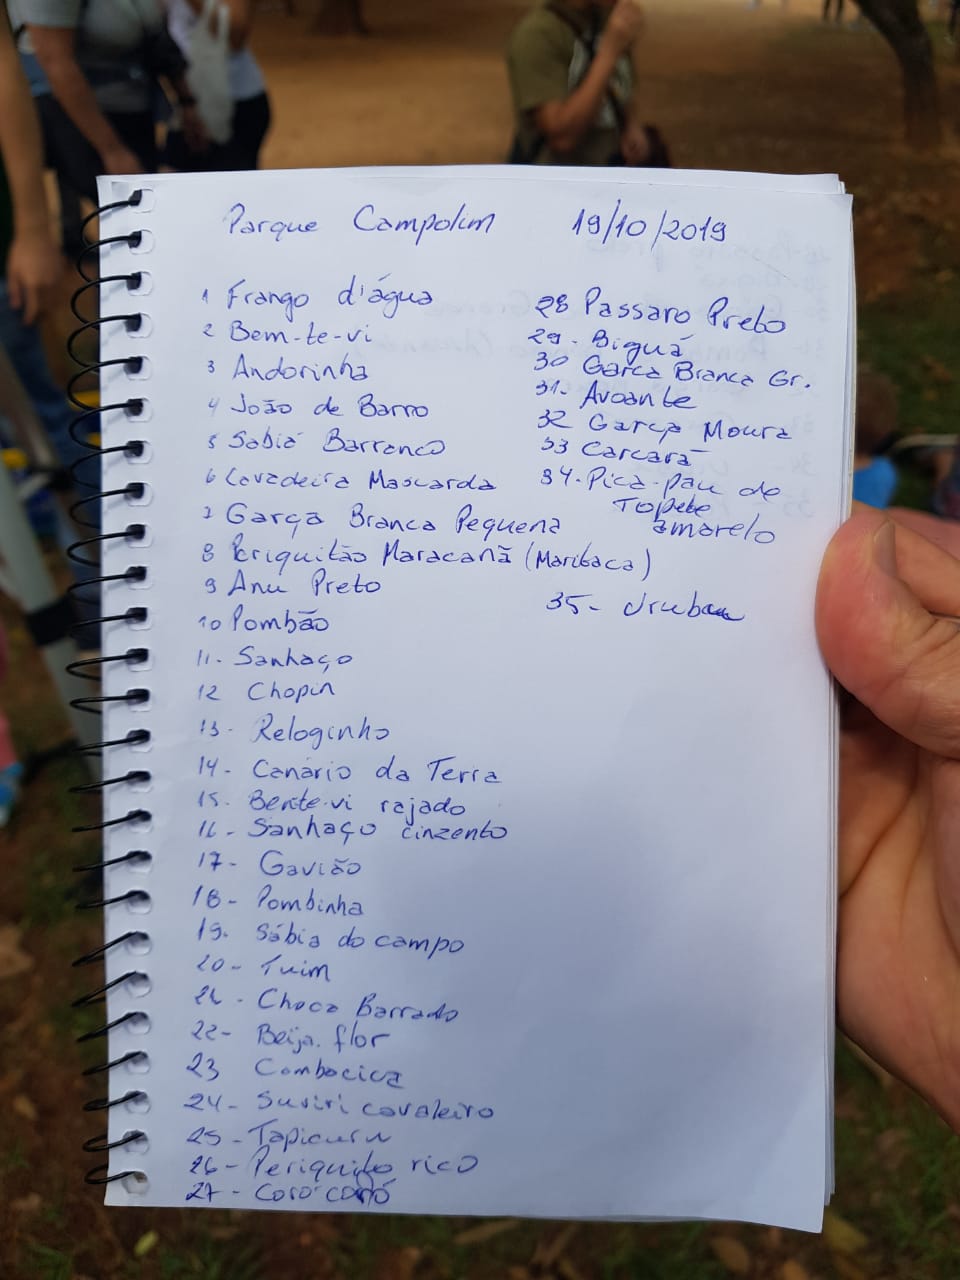 Parque Campolim 19/10/2019
1 Frango d'água
2 Bem-te-vi
3 Andorinha
4 João de Barro
5 Sabiá Barranco
6 Lavadeira Mascarda
7 Garça Branca Pequena
8 Periquitão Maracanã (Maritaca)
9 Anu Preto
10 Pombão
11. Sanhaço
12 Chopin
13- Reloginho
14- Canário da Terra
15. Bente-vi rajado
16- Sanhaço cinzento
17- Gavião
18- Pombinha
19. Sábia do campo
20- Tuim
21- Choca Barrado
22- Beija-flor
23 Cambacica
24- Suriri cavaleiro
25- Tapicuru
26- Periquito rico
27- Coró-coró
28 Passaro Preto
29- Biguá
30 Garça Branca Gr.
31- Avoante
32 Garça Moura
33 Carcará
34- Pica-pau do
Topete
amarelo
35- Urubu